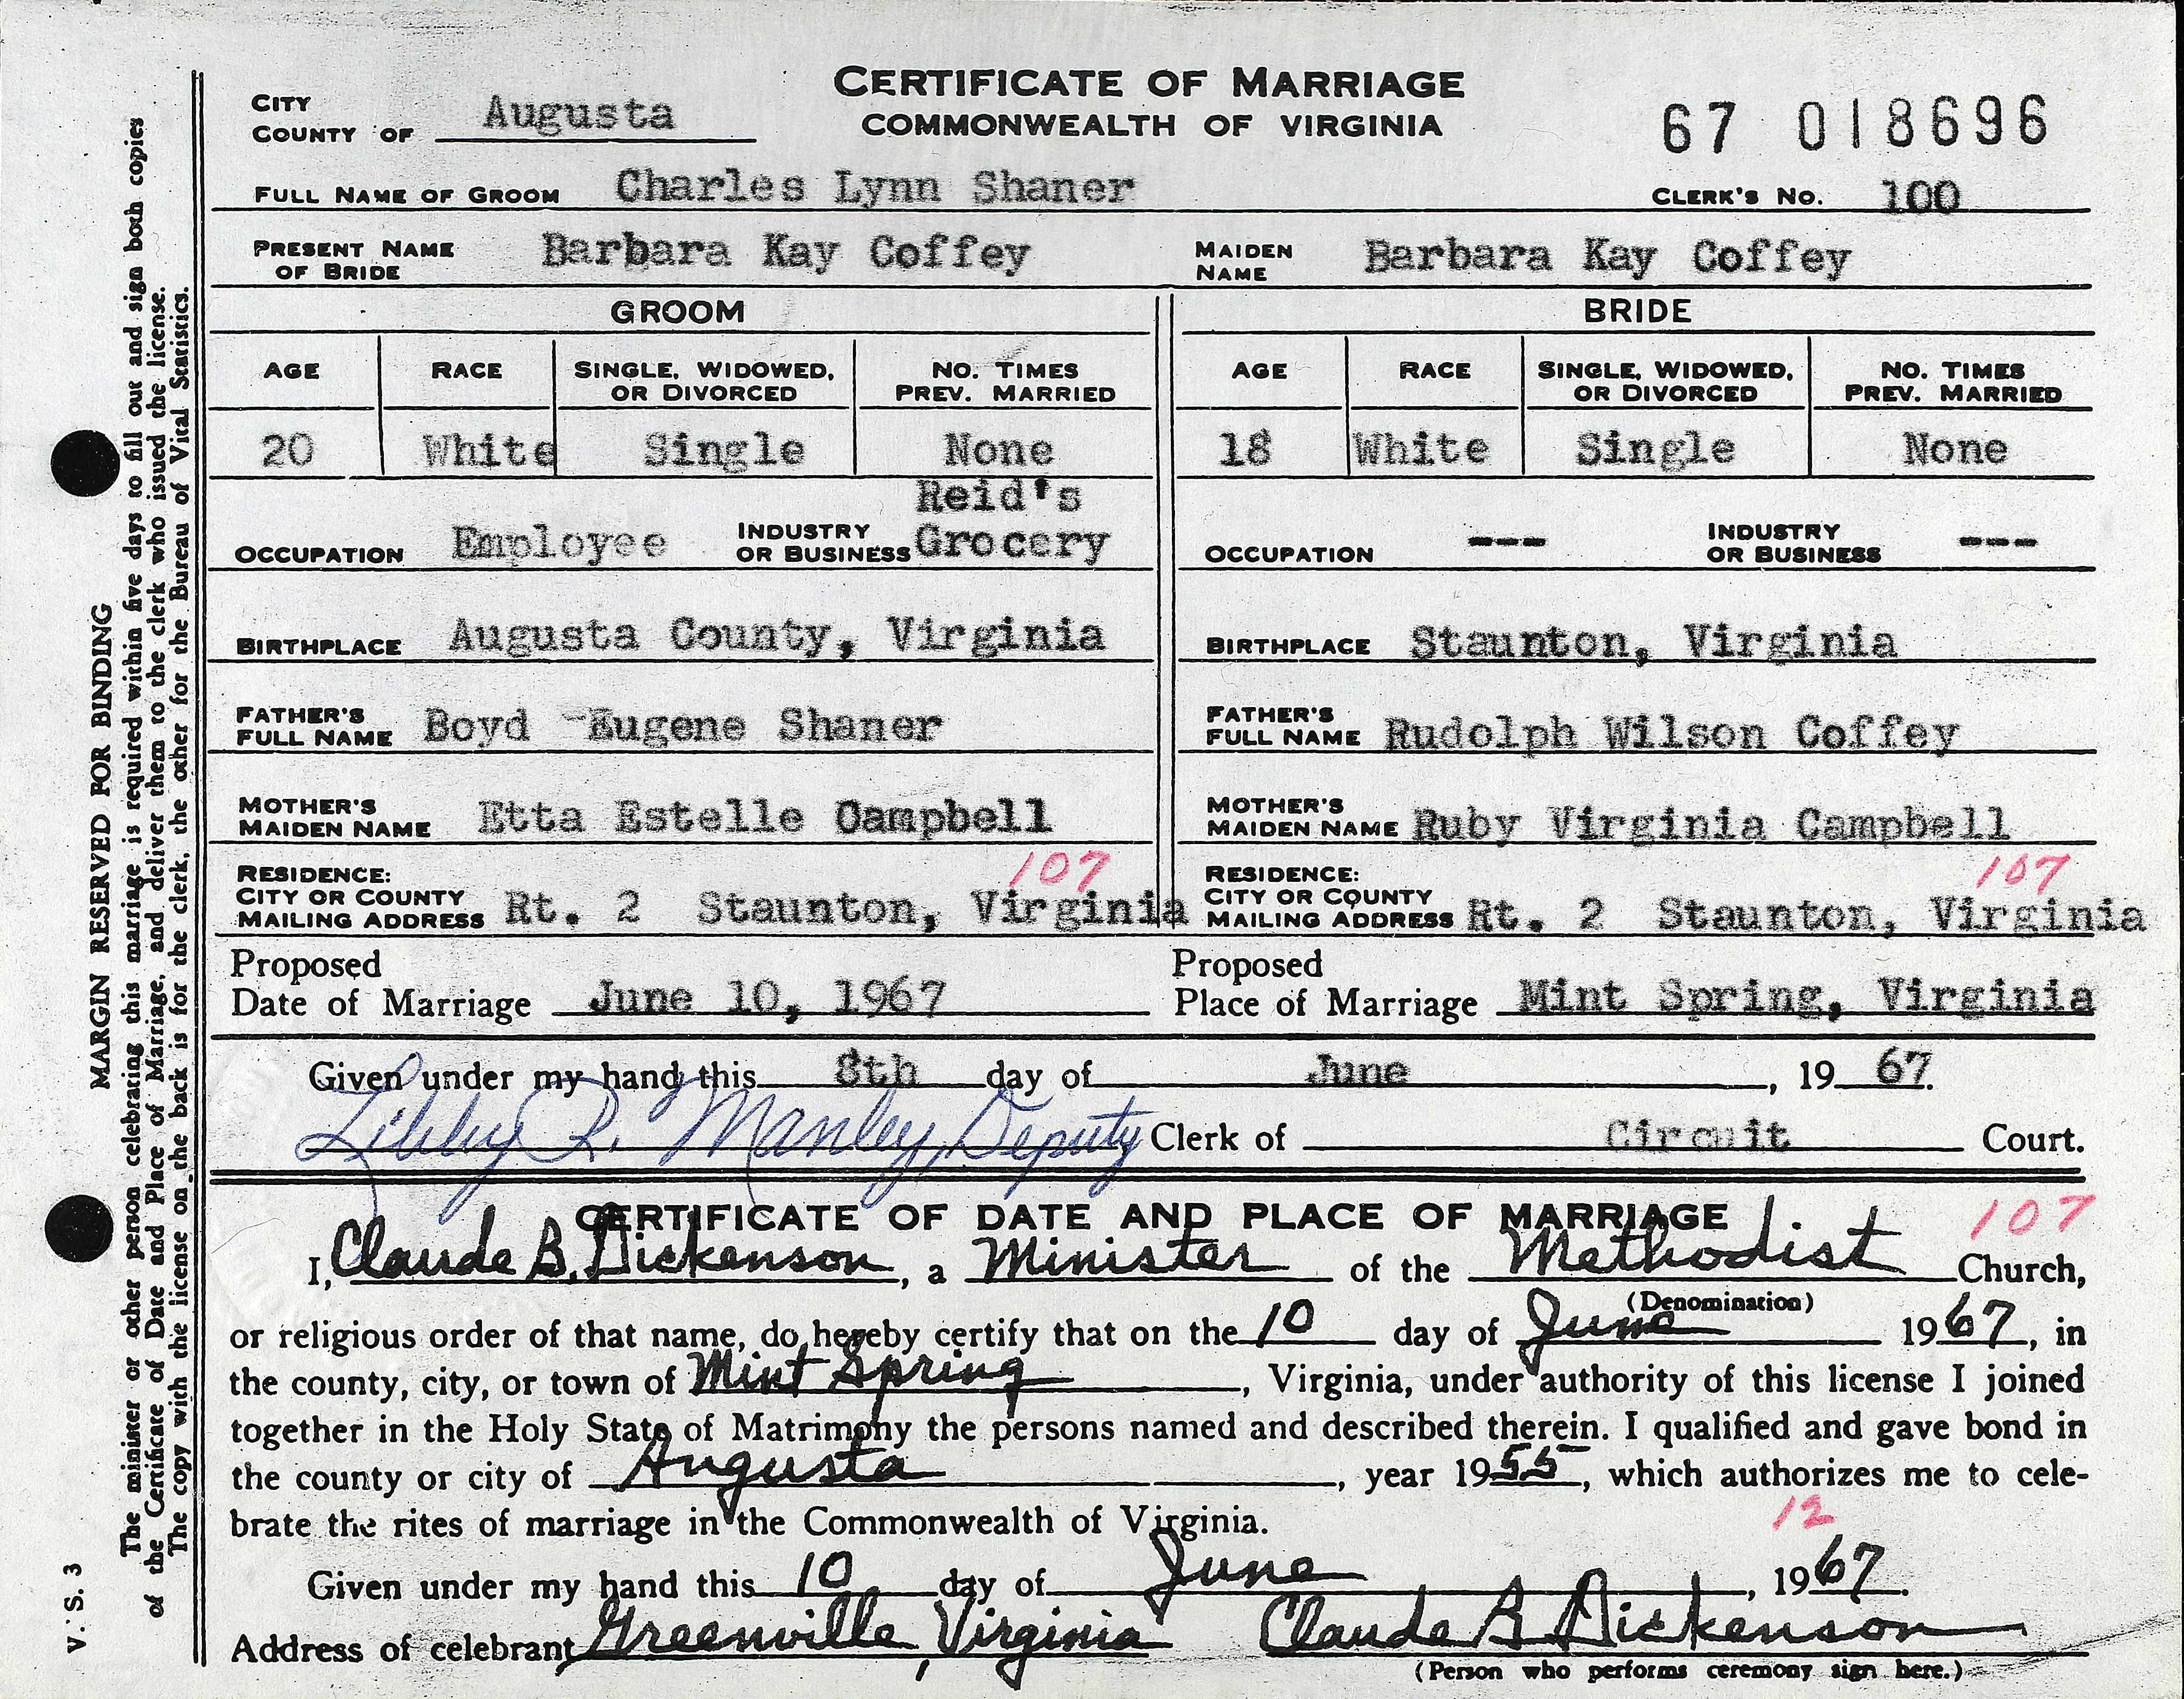 CERTIFICATE OF MARRIAGE
COMMONWEALTH OF VIRGINIA
CITY
COUNTY OF Augusta
67 018696
FULL NAME OF GROOM Charles Lynn Shaner CLERK'S NO. 100
PRESENT NAME OF BRIDE Barbara Kay Coffey MAIDEN NAME Barbara Kay Coffey
GROOM BRIDE
AGE RACE SINGLE, WIDOWED, OR DIVORCED NO. TIMES PREV. MARRIED AGE RACE SINGLE, WIDOWED, OR DIVORCED NO. TIMES PREV. MARRIED
20 White Single None 18 White Single None
OCCUPATION Employee INDUSTRY OR BUSINESS Reid's Grocery OCCUPATION --- INDUSTRY OR BUSINESS ---
BIRTHPLACE Augusta County, Virginia BIRTHPLACE Staunton, Virginia
FATHER'S FULL NAME Boyd Eugene Shaner FATHER'S FULL NAME Rudolph Wilson Coffey
MOTHER'S MAIDEN NAME Etta Estelle Campbell MOTHER'S MAIDEN NAME Ruby Virginia Campbell
107 107
RESIDENCE: CITY OR COUNTY MAILING ADDRESS Rt. 2 Staunton, Virginia RESIDENCE: CITY OR COUNTY MAILING ADDRESS Rt. 2 Staunton, Virginia
Proposed Date of Marriage June 10, 1967 Proposed Place of Marriage Mint Spring, Virginia
Given under my hand this 8th day of June, 19 67.
Libby R. Manley, Deputy Clerk of Circuit Court.
CERTIFICATE OF DATE AND PLACE OF MARRIAGE 107
I, Claude B. Dickenson, a Minister of the Methodist Church,
(Denomination)
or religious order of that name, do hereby certify that on the 10 day of June 1967, in
the county, city, or town of Mint Spring, Virginia, under authority of this license I joined
together in the Holy State of Matrimony the persons named and described therein. I qualified and gave bond in
the county or city of Augusta, year 1955, which authorizes me to cele-
brate the rites of marriage in the Commonwealth of Virginia.
12
Given under my hand this 10 day of June, 1967.
Address of celebrant Greenville, Virginia Claude B Dickenson
(Person who performs ceremony sign here.)
V. S. 3
MARGIN RESERVED FOR BINDING
The minister or other person celebrating this marriage is required within five days to fill out and sign both copies
of the Certificate of Date and Place of Marriage, and deliver them to the clerk who issued the license.
The copy with the license on the back is for the clerk, the other for the Bureau of Vital Statistics.